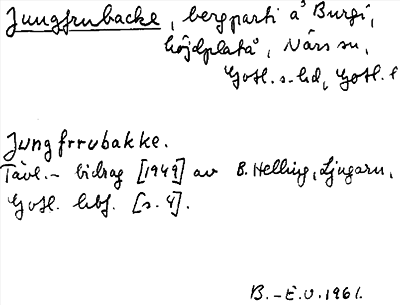 Jungfrubacke, bergparti å Burgi,
höjdplatå, Närs sn,
Gotl. s. hd, Gotl. l
Jungfrrubakke.
Tävl.- bidrag [1949] av B. Helling, Ljugarn,
Gotl. hbf. [s. 4].
B.-E.O. 1961.